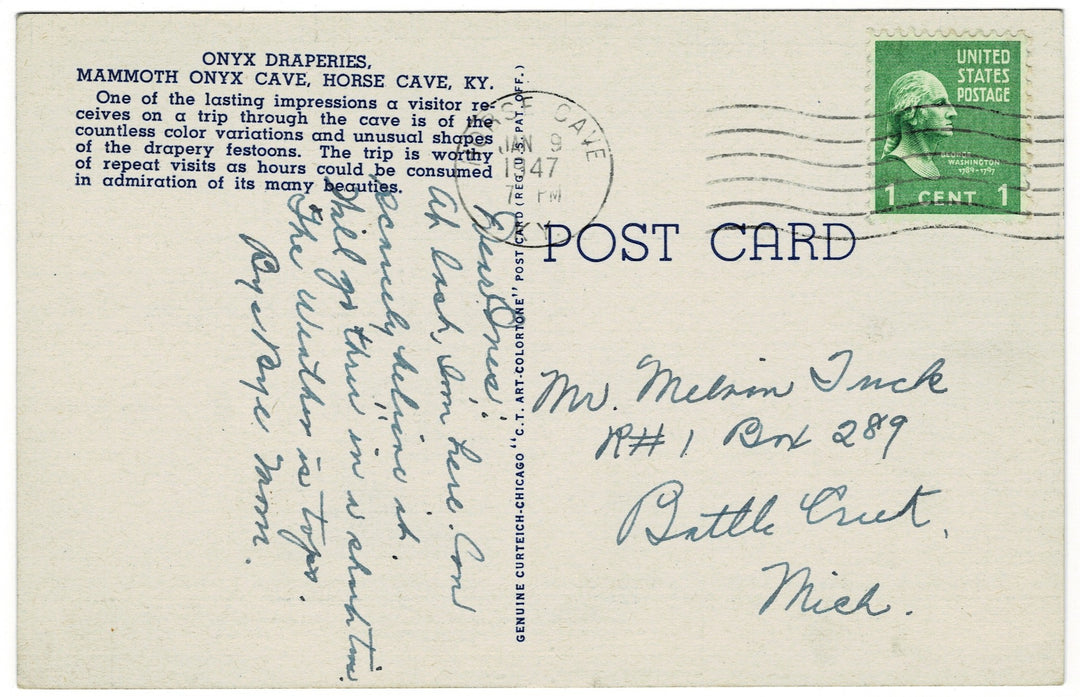 ONYX DRAPERIES,
MAMMOTH ONYX CAVE, HORSE CAVE, KY.
One of the lasting impressions a visitor re-
ceives on a trip through the cave is of the
countless color variations and unusual shapes
of the drapery festoons. The trip is worthy
of repeat visits as hours could be consumed
in admiration of its many beauties.
HORSE CAVE
JAN 9
1947
7 PM
KY.
UNITED
STATES
POSTAGE
GEORGE
WASHINGTON
1789-1797
1 CENT 1
POST CARD
GENUINE CURTEICH-CHICAGO "C.T. ART-COLORTONE" POST CARD (REG. U.S. PAT. OFF.)
Dear Ones"
At last, I'm here. Can
scarcely believe it.
Will go thru in a short time
The weather is tops.
Bye Bye Mom.
Mr. Melvin Tuck
R#1 Box 289
Battle Creek,
Mich.